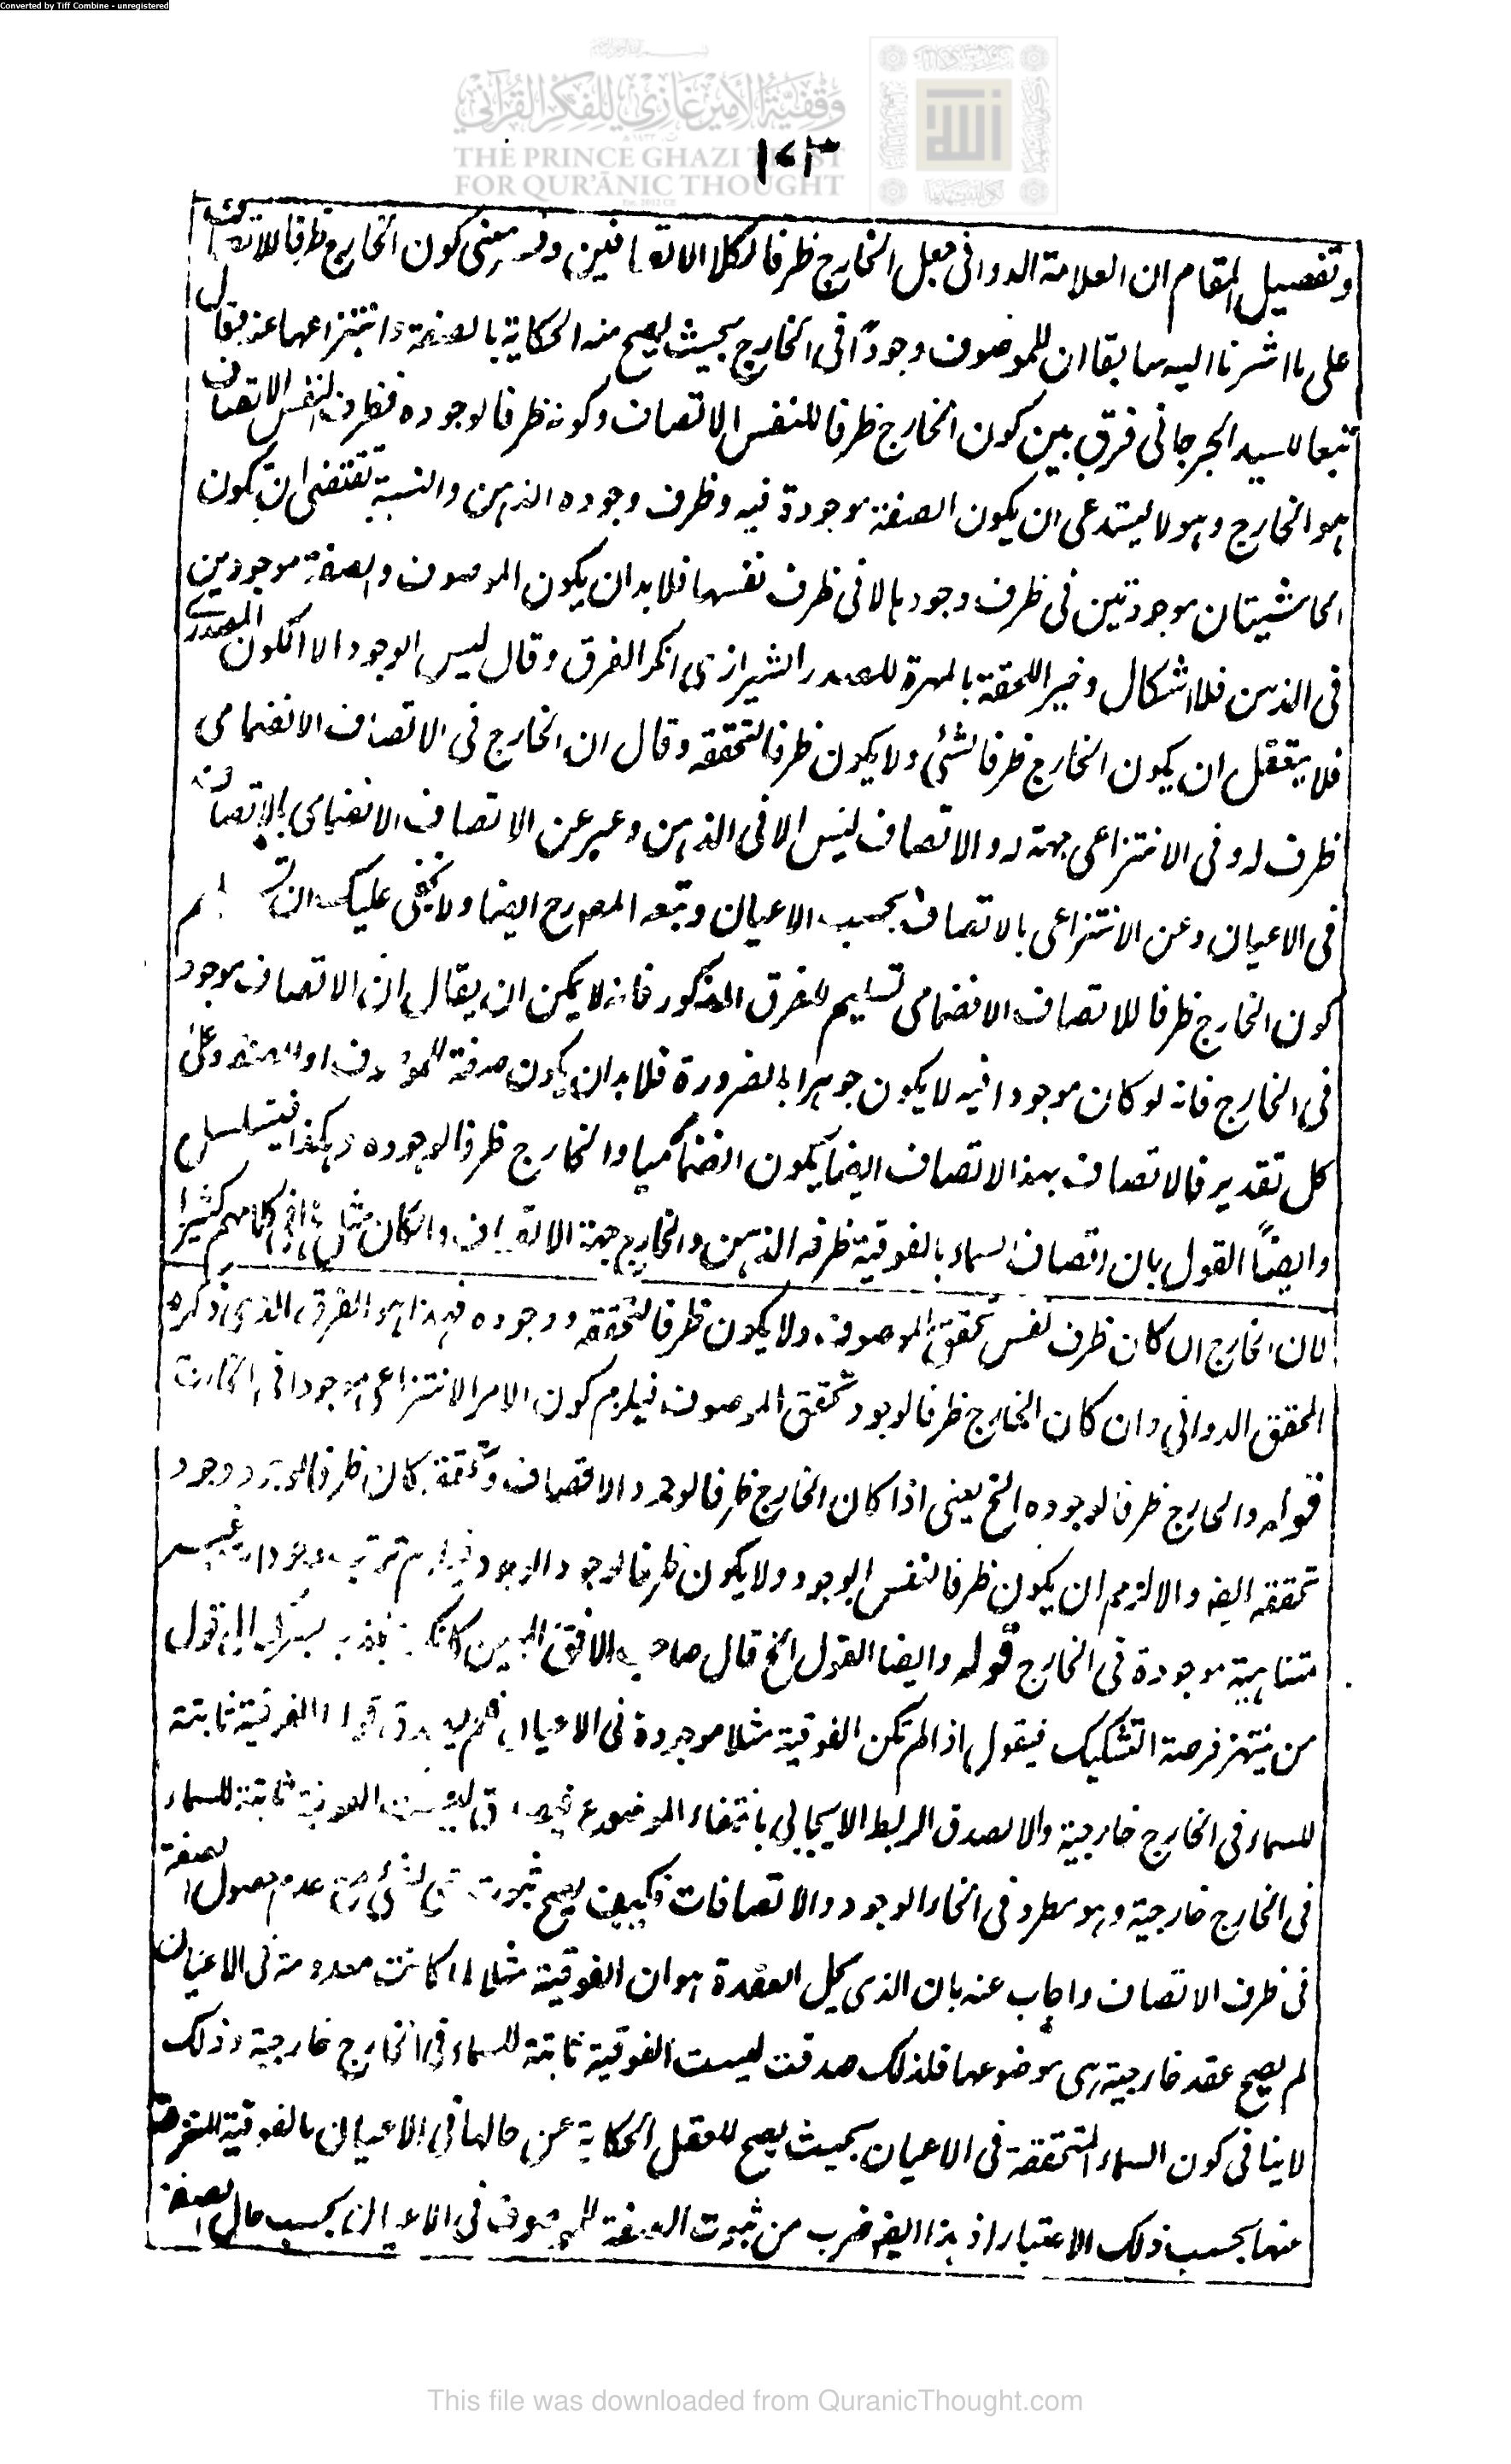 Converted by Tiff Combine - unregistered
وقفية الأمير غازي للفكر القرآني
THE PRINCE GHAZI TRUST
FOR QUR'ĀNIC THOUGHT
١٧٣
وتفصيل المقام ان العلامة الدواني جعل الخارج ظرفا لكلا الاتصافين وقد معنى كون الخارج ظرفا للاتصاف
على ما اشرنا اليه سابقا ان للموصوف وجودا في الخارج بحيث يصح منه الحكاية بالصفة وانتزاعها عنه فقال
تبعا للسيد الجرجاني فرق بين كون الخارج ظرفا لنفس الاتصاف وكونه ظرفا لوجوده فظرف نفس الاتصاف
هو الخارج وهو لا يستدعى ان يكون الصفة موجودة فيه وظرف وجوده الذهن والنسبة تقتضى ان تكون
الحاشيتان موجودتين في ظرف وجودها لا في ظرف نفسها فلا بد ان يكون الموصوف والصفة موجودين
في الذهن فلا اشكال وخير اللحقة بالمهرة للصدر الشيرازى انكر الفرق وقال ليس الوجود الا الكون المصدرى
فلا يتعقل ان يكون الخارج ظرفا لشئ ولا يكون ظرفا لتحققه وقال ان الخارج في الاتصاف الانضمامى
ظرف له وفى الانتزاعى جهة له والاتصاف ليس الا فى الذهن وعبر عن الاتصاف الانضمامى بالاتصاف
فى الاعيان وعن الانتزاعى بالاتصاف بحسب الاعيان وتبعه المصرح ايضا ولا يخفى عليك ان
كون الخارج ظرفا للاتصاف الانضمامى تسليم للفرق المذكور فانه لا يمكن ان يقال ان الاتصاف موجود
فى الخارج فانه لو كان موجودا فيه لا يكون جوهرا بالضرورة فلا بد ان يكون صفة للموصوف او للصفة وعلى
كل تقدير فالاتصاف بهذا الاتصاف ايضا يكون انضماميا والخارج ظرفا لوجوده وهكذا فيتسلسل
وايضًا القول بان اتصاف السماء بالفوقية ظرفه الذهن والخارج جهة الاتصاف وان كان فى كلامهم كثيرا
لان الخارج ان كان ظرف نفس تحقق الموصوف ولا يكون ظرفا لتحققه ووجوده فهذا هو الفرق الذى ذكره
المحقق الدوانى وان كان الخارج ظرفا لوجود تحقق الموصوف فيلزم كون الامر الانتزاعى موجودا فى الخارج
قوله والخارج ظرفا لوجوده الخ يعنى اذا كان الخارج ظرفا لوجود الاتصاف وتحققه كان ظرفا لوجود وجود
تحققه ايضا والا لزم ان يكون ظرفا لنفس الوجود ولا يكون ظرفا لوجود الوجود فيلزم ترتب وجودات غير
متناهية موجودة فى الخارج قوله وايضا القول الخ قال صاحب الافق المبين الى قول
من ينتهز فرصة التشكيك فيقول اذا لم تكن الفوقية مثلا موجودة فى الاعيان فلم يصدق قولنا الفوقية ثابتة
للسماء فى الخارج خارجية والا لصدق الربط الايجابى بانتفاء الموضوع فيصدق ليست الفوقية ثابتة للسماء
فى الخارج خارجية وهو مطرد فى انحاء الوجود والاتصافات فكيف يصح ثبوت شئ لشئ من عدم حصول الصفة
فى ظرف الاتصاف واجاب عنه بان الذى يحل العقدة هو ان الفوقية مثلا لما كانت معدومة فى الاعيان
لم يصح عقد خارجية هى موضوعها فلذلك صدقت ليست الفوقية ثابتة للسماء فى الخارج خارجية وذلك
لا ينافى كون السماء المتحققة فى الاعيان بحيث يصح للعقل الحكاية عن حالها فى الاعيان بالفوقية المنتزعة
عنها بحسب ذلك الاعتبار اذ هذا ايضا ضرب من ثبوت الصفة للموصوف فى الاعيان بحسب حال الصفة
This file was downloaded from QuranicThought.com